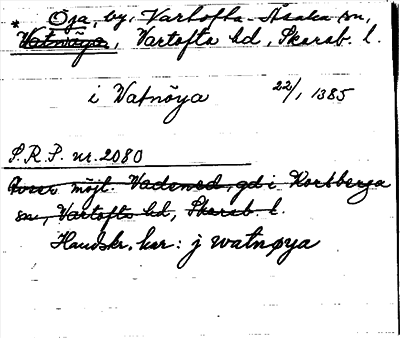 * Öja, by, Vartofta-Åsaka sn,
Watnöya, Vartofta hd, Skarab. l.
i Watnöya 22/1 1385
S.R.P. nr. 2080
Avser möjl. Vadsmed, gd i Korsberga
sn, Vartofta hd, Skarab. l.
Handskr. har: j watnøya